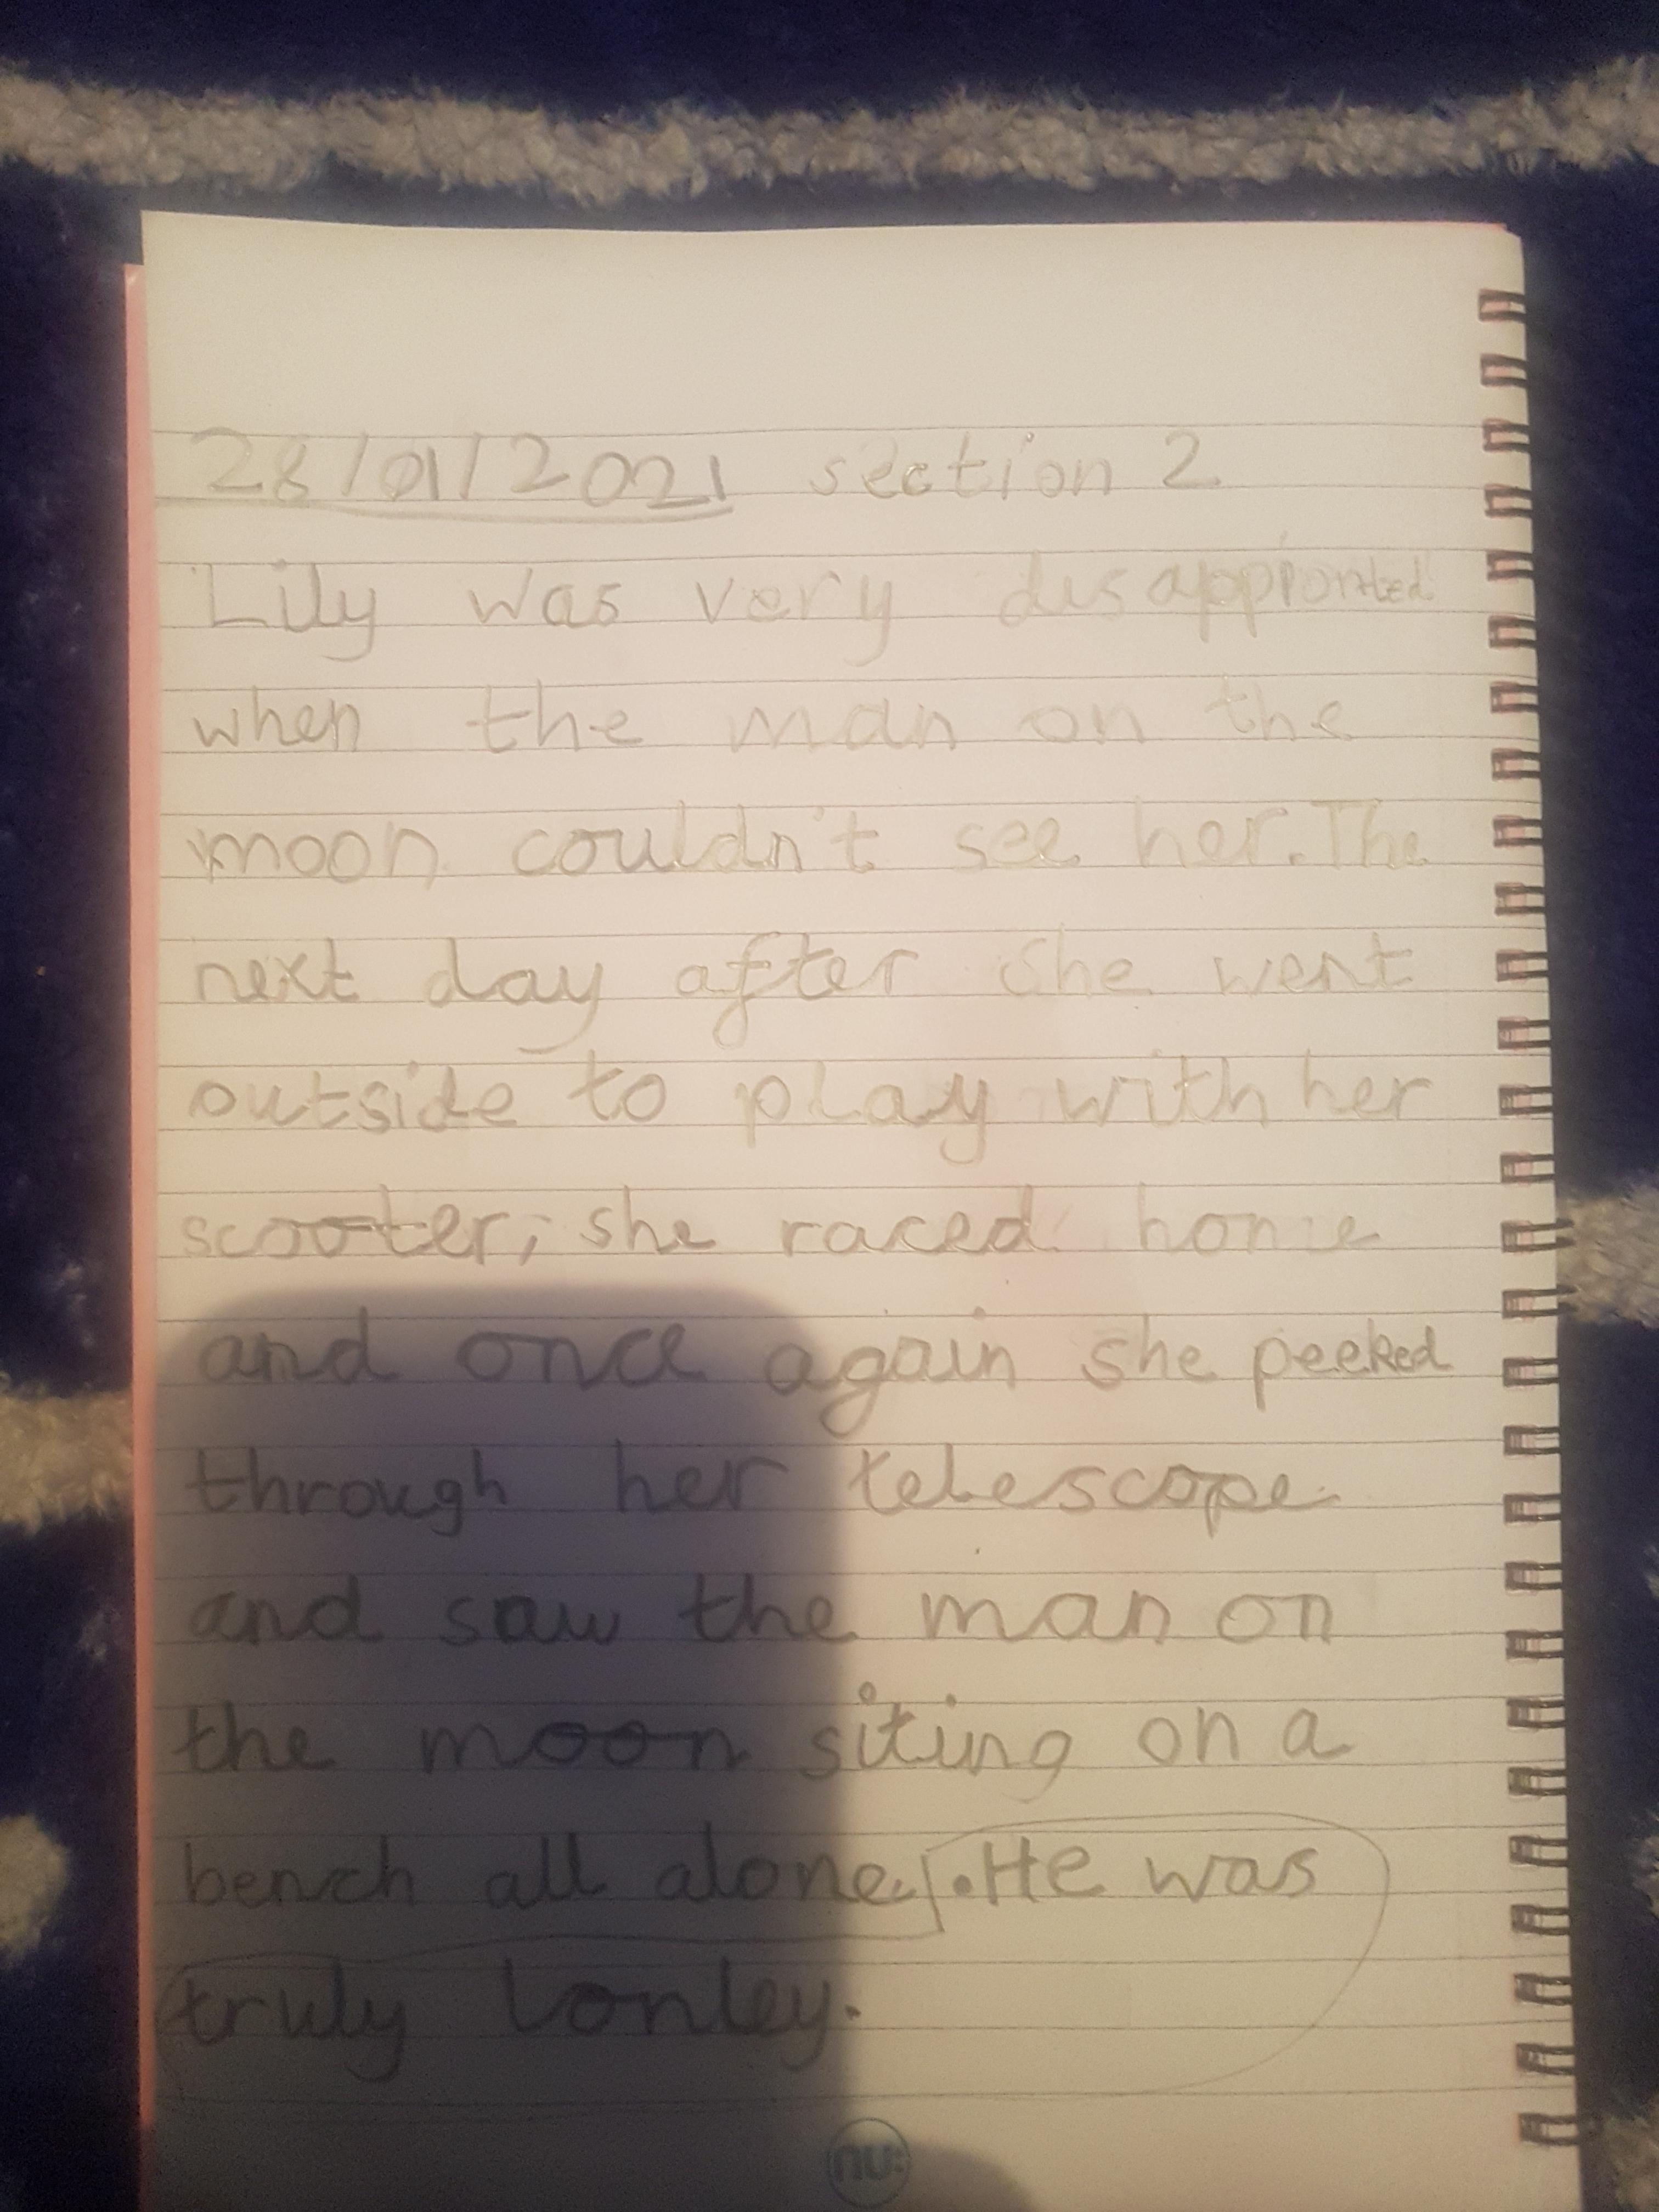 28/01/2021 section 2
Lily was very disappionted
when the man on the
moon couldn't see her. The
next day after she went
outside to play with her
scooter, she raced home
and once again she peeked
through her telescope
and saw the man on
the moon siting on a
bench all alone. He was
truly lonley.
nu: